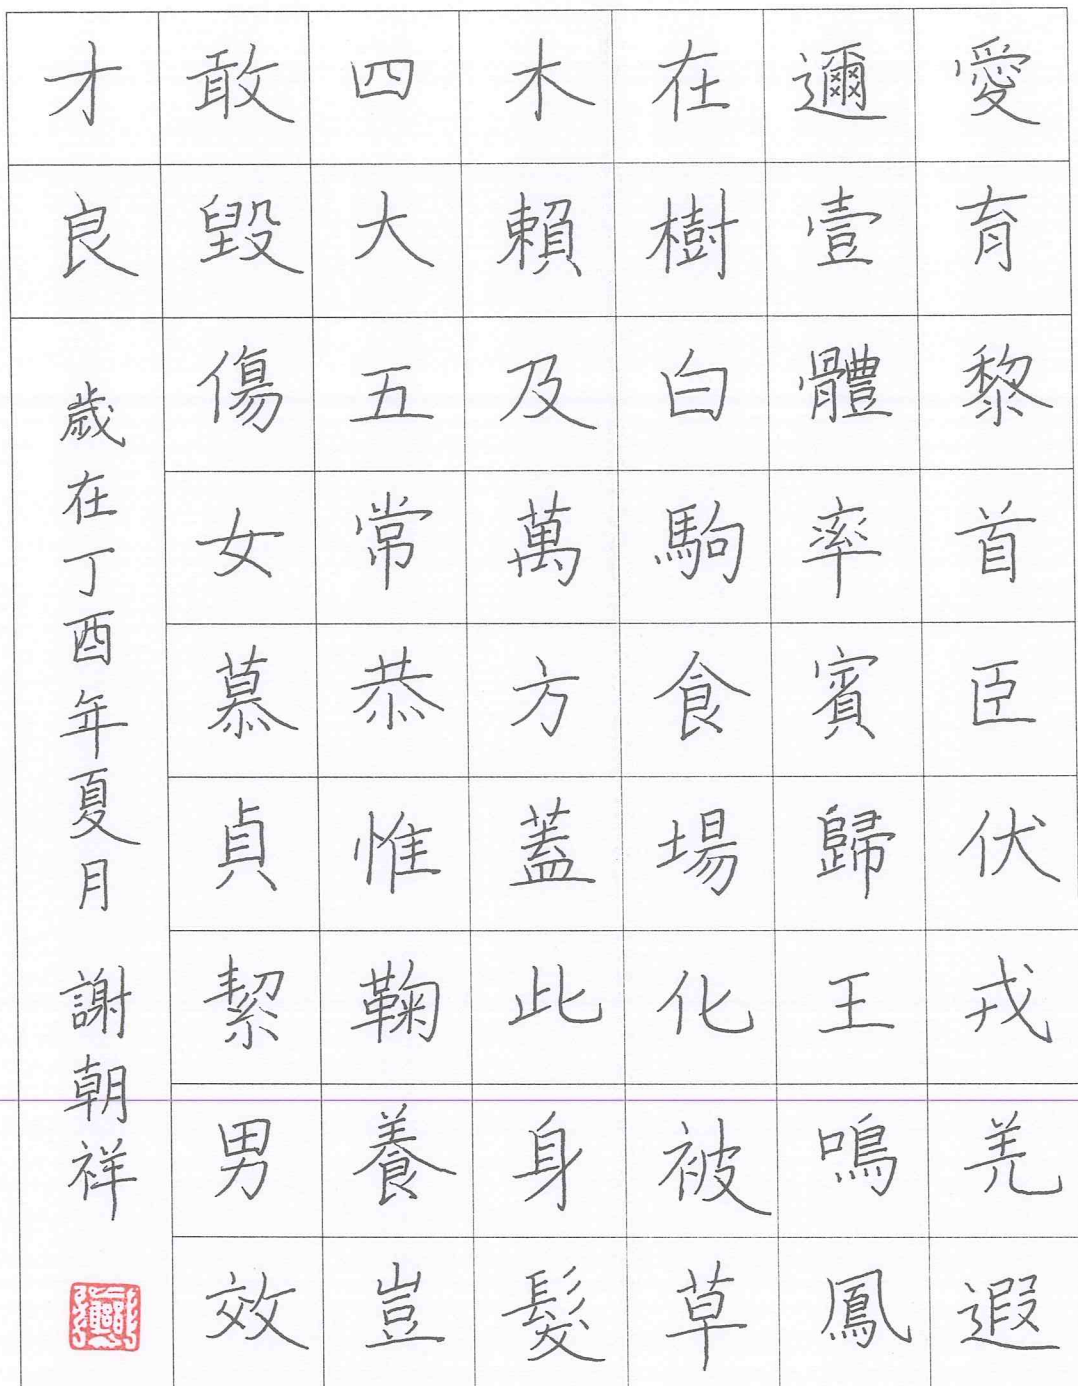 愛育黎首臣伏戎羌遐
邇壹體率賓歸王鳴鳳
在樹白駒食場化被草
木賴及萬方蓋此身髮
四大五常恭惟鞠養豈
敢毀傷女慕貞絜男效
才良
歲在丁酉年夏月 謝朝祥